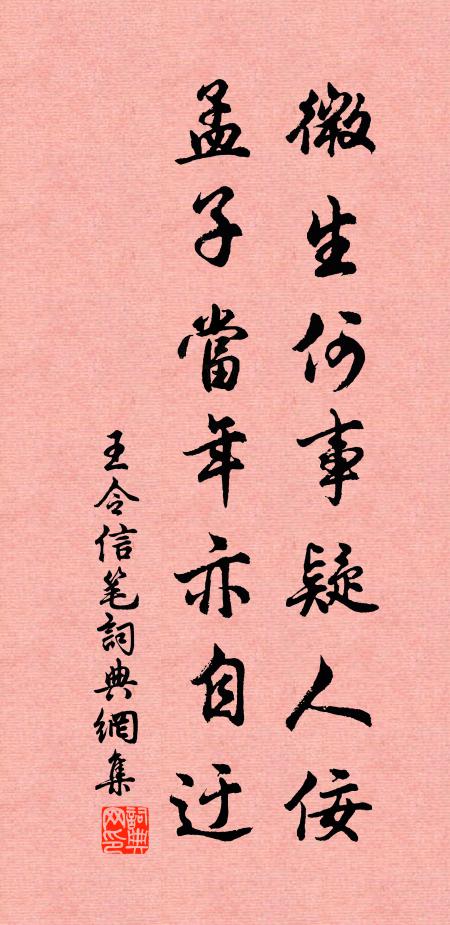 微生何事疑人佞
孟子當年亦自迂
王令信笔詞典網集
詞典网印